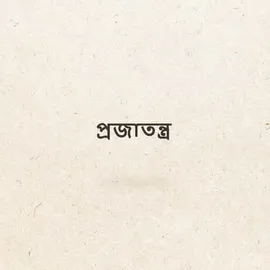 প্রজাতন্ত্র